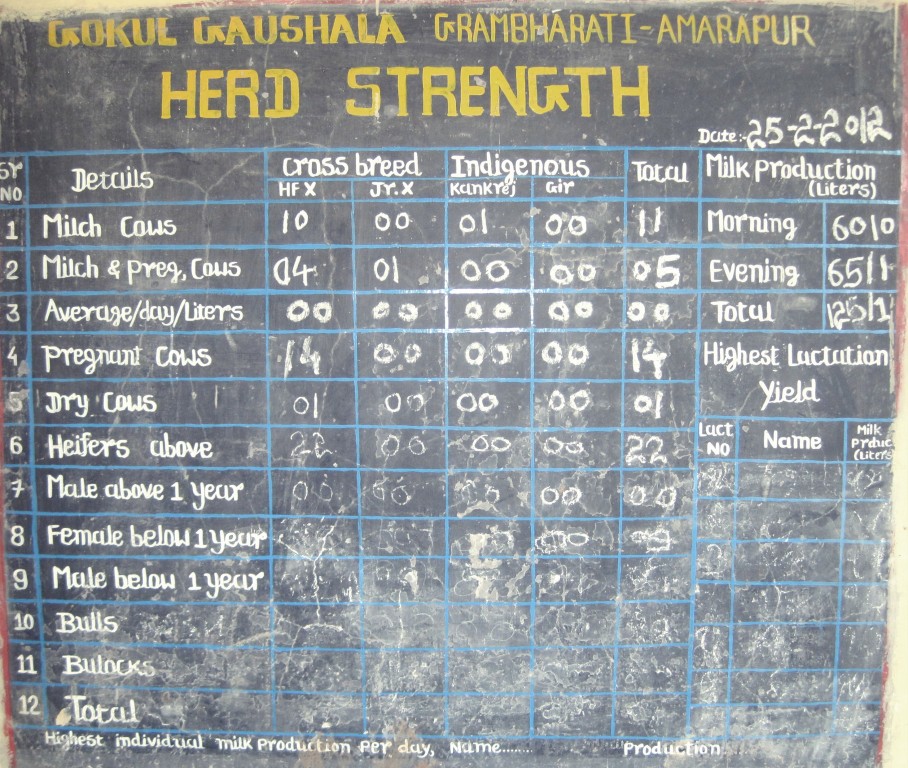 GOKUL GAUSHALA GRAMBHARATI-AMARAPUR
HERD STRENGTH
Date:-25-2-2012
Sr NO Details Cross breed Indigenous Total Milk Production (Liters)
HF X Jr. X Kankrej Gir
1 Milch Cows 10 00 01 00 11 Morning 6010
2 Milch & preg, Cows 04 01 00 00 05 Evening 6511
3 Average/day/Liters 00 00 00 00 00 Total
4 Pregnant Cows 14 00 00 00 14 Highest Lactation
Yield
5 Dry Cows 01 00 00 00 01
6 Heifers above 22 00 00 00 22 Lact NO Name Milk Prduc (Liters
7 Male above 1 year 00 00 00 00
8 Female below 1 year
9 Male below 1 year
10 Bulls
11 Bulocks
12 Total
Highest individual milk Production Per day, Name....... Production